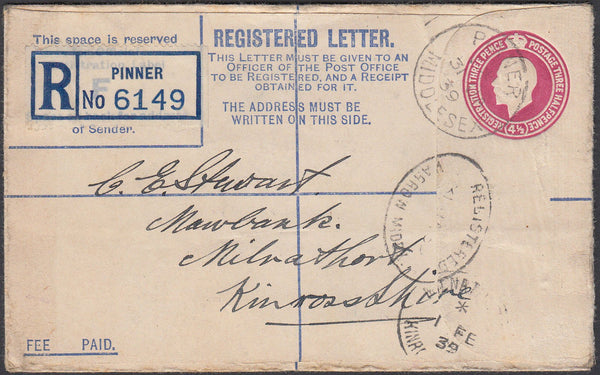 This space is reserved
R PINNER
No 6149
of Sender.
REGISTERED LETTER.
THIS LETTER MUST BE GIVEN TO AN
OFFICER OF THE POST OFFICE
TO BE REGISTERED, AND A RECEIPT
OBTAINED FOR IT.
THE ADDRESS MUST BE
WRITTEN ON THIS SIDE.
PINNER
MIDDLESEX
REGISTRATION THREE PENCE
POSTAGE THREE HALFPENCE
4½D
C. E. Stewart.
Mawbank.
Milnathort.
Kinross-shire
REGISTERED
1 FE
39
FEE PAID.